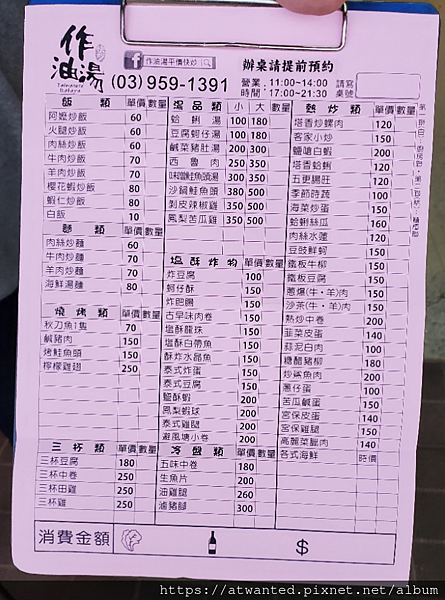 作油湯
作油湯平價快炒
(03)959-1391
辦桌請提前預約
營業時間：11:00~14:00 17:00~21:30
請寫桌號
飯類 單價 數量
阿嬤炒飯 60
火腿炒飯 60
肉絲炒飯 60
牛肉炒飯 70
羊肉炒飯 70
櫻花蝦炒飯 80
蝦仁炒飯 80
白飯 10
麵類 單價 數量
肉絲炒麵 60
牛肉炒麵 70
羊肉炒麵 70
海鮮湯麵 80
燒烤類 單價 數量
秋刀魚1隻 70
鹹豬肉 150
烤鮭魚頭 150
檸檬雞翅 250
三杯類 單價 數量
三杯豆腐 180
三杯中卷 250
三杯田雞 250
三杯雞 250
湯品類 小 大 數量
蛤蜊湯 100 180
豆腐蚵仔湯 100 180
鹹菜豬肚湯 200 300
西魯肉 250 350
味噌鮭魚頭湯 300 350
沙鍋鮭魚頭 380 500
剝皮辣椒雞 350 500
鳳梨苦瓜雞 350 500
塩酥炸物 單價 數量
炸豆腐 100
蚵仔酥 150
炸肥腸 150
古早味肉卷 150
塩酥龍珠 150
塩酥白帶魚 150
酥炸水晶魚 150
泰式炸蛋 150
泰式豆腐 150
鹽酥蝦 200
鳳梨蝦球 200
泰式雞腿 200
避風塘小卷 200
冷盤類 單價 數量
五味中卷 180
生魚片 200
油雞腿 260
滷豬腳 300
熱炒類 單價 數量
塔香炒螺肉 120
客家小炒 150
鹽嗆白蝦 200
塔香蛤蜊 120
五更腸旺 120
季節時蔬 100
海菜炒蛋 150
蛤蜊絲瓜 160
肉絲水蓮 120
豆豉鮮蚵 150
鐵板牛柳 150
鐵板豆腐 150
蔥爆(牛·羊)肉 150
沙茶(牛·羊)肉 150
熱炒中卷 200
韮菜皮蛋 140
蒜泥白肉 100
糖醋豬柳 180
炒鯊魚肉 200
蔥仔蛋 100
苦瓜鹹蛋 150
宮保皮蛋 140
宮保雞腿 150
高麗菜臘肉 140
各式海鮮 時價
消費金額 $
https://atwanted.pixnet.net/album